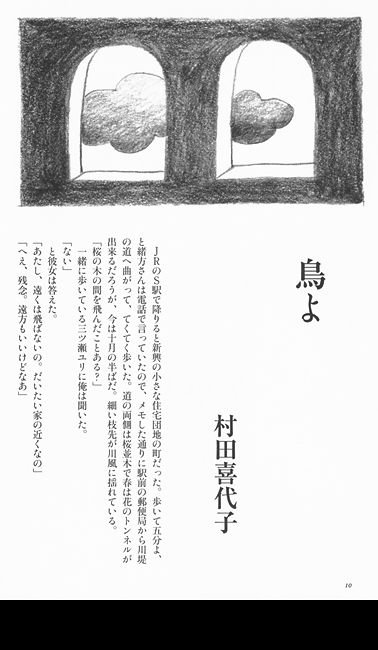 鳥よ
村田喜代子
　ＪＲのＳ駅で降りると新興の小さな住宅団地の町だった。歩いて五分よ、
と緒方さんは電話で言っていたので、メモした通りに駅前の郵便局から川堤
の道へ曲がって、てくてく歩いた。道の両側は桜並木で春は花のトンネルが
出来るだろうが、今は十月の半ばだ。細い枝先が川風に揺れている。
「桜の木の間を飛んだことある？」
　一緒に歩いている三ツ瀬ユリに俺は聞いた。
「ない」
　と彼女は答えた。
「あたし、遠くは飛ばないの。だいたい家の近くなの」
「へえ、残念。遠方もいいけどなあ」
10